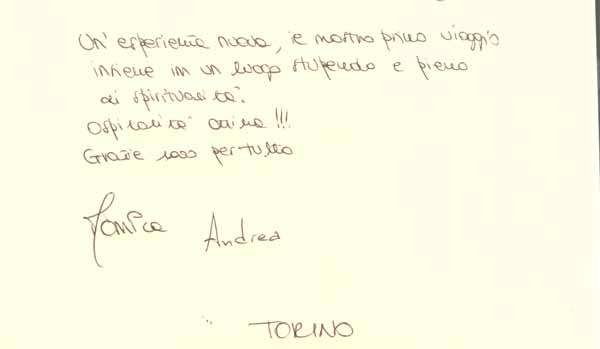 Un'esperienza nuova, il nostro primo viaggio
insieme in un luogo stupendo e pieno
di spiritualità.
Ospitalità ottima!!!
Grazie 1000 per tutto
Monica Andrea
TORINO